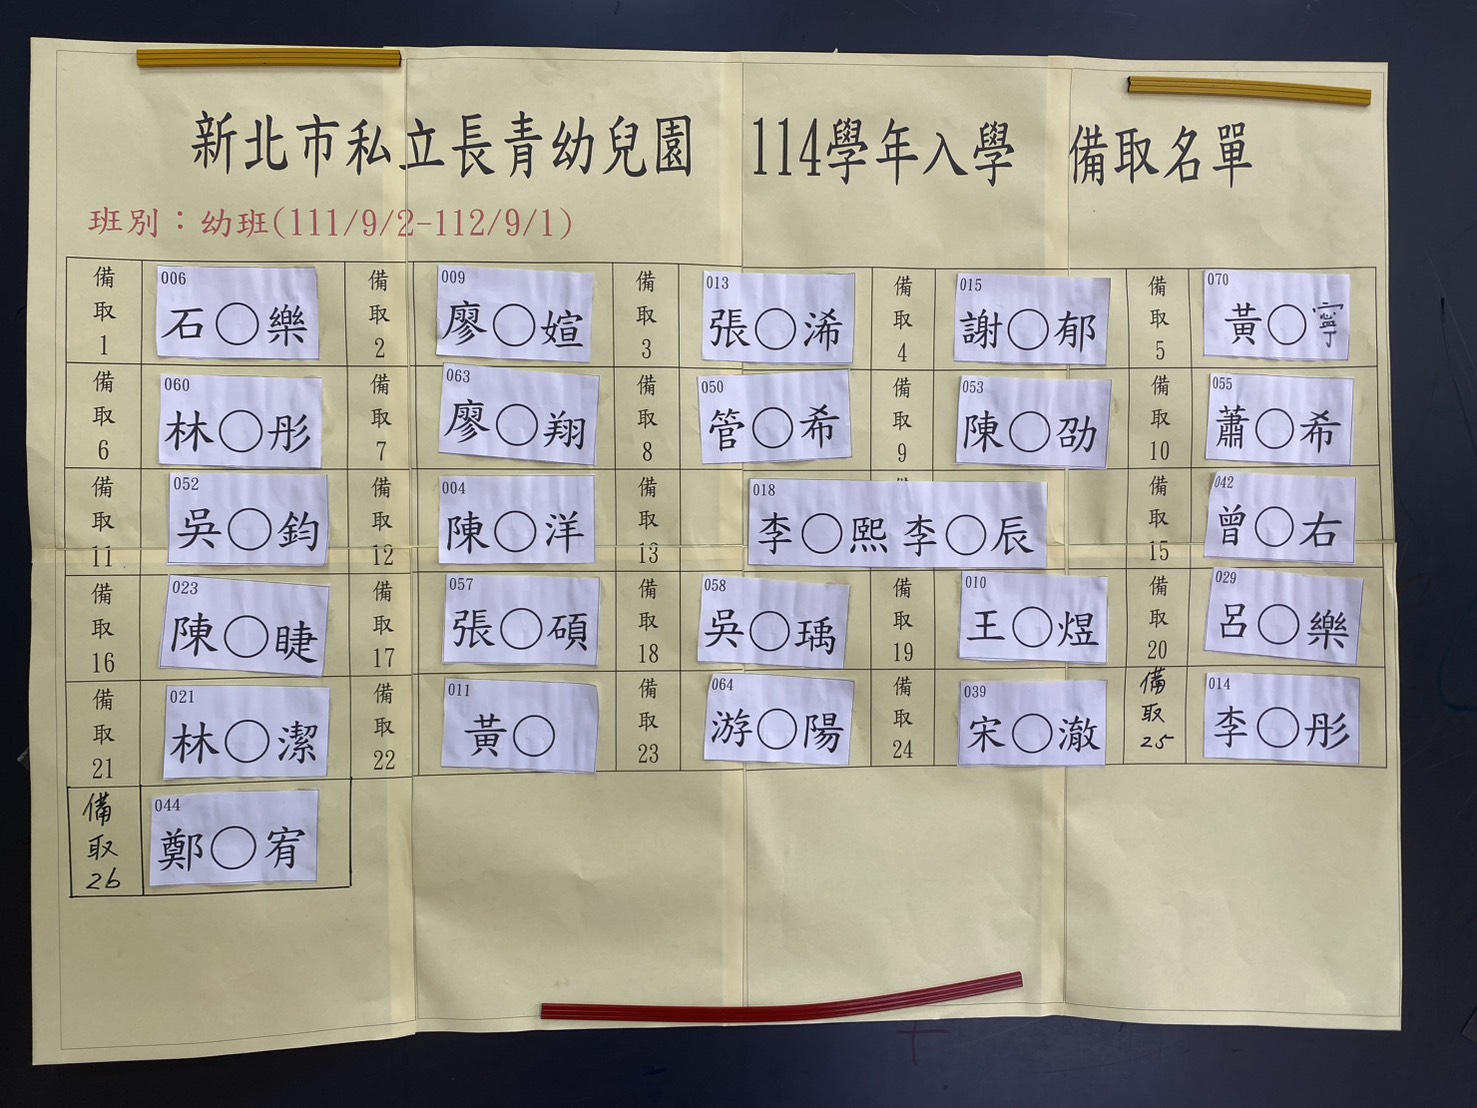 新北市私立長青幼兒園 114學年入學 備取名單
班別：幼班(111/9/2-112/9/1)
備取1 006 石○樂
備取2 009 廖○媗
備取3 013 張○浠
備取4 015 謝○郁
備取5 070 黃○寧
備取6 060 林○彤
備取7 063 廖○翔
備取8 050 管○希
備取9 053 陳○劭
備取10 055 蕭○希
備取11 052 吳○鈞
備取12 004 陳○洋
備取13 018 李○熙 李○辰
備取15 042 曾○右
備取16 023 陳○睫
備取17 057 張○碩
備取18 058 吳○瑀
備取19 010 王○煜
備取20 029 呂○樂
備取21 021 林○潔
備取22 011 黃○
備取23 064 游○陽
備取24 039 宋○澈
備取25 014 李○彤
備取26 044 鄭○宥